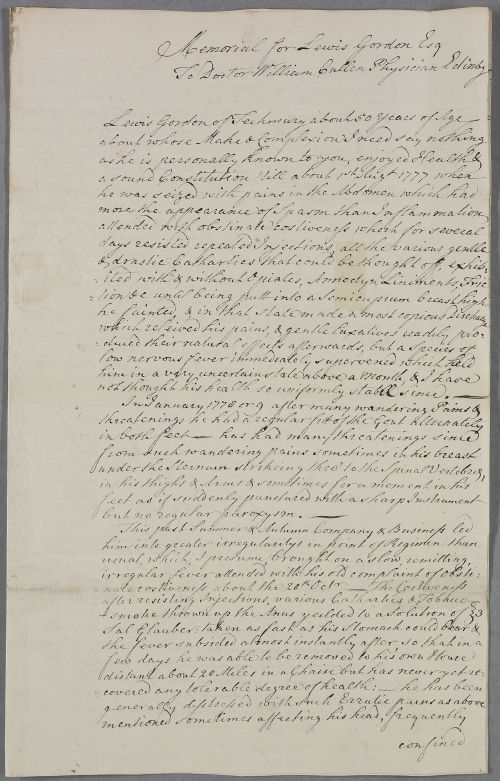 Memorial for Lewis Gordon Esq
To Doctor William Cullen Physician Edinbr
Lewis Gordon of Techmury about 50 Years of Age
about whose Make & Complexion I need say nothing
as he is personally known to you, enjoyed Health &
a sound Constitution till about 1st July 1777 when
he was seized with pains in the Abdomen which had
more the appearance of Spasm than Inflammation
attended with obstinate costiveness which for several
days resisted repeated Injections, all the various gentle
& drastic Cathartics that could be thought off, exhib-
-ited with & without Opiates, Annodyn Liniments, Fric
-tion &c until being putt into a Semicupium breast high
he fainted, & in that state made a most copious Discharge
which releived his pains, & gentle laxatives readily pro-
-duced their natural effects afterwards, but a species of
low nervous fever immediately supervened which held
him in a very uncertain state above a Month, & I have
not thought his health so uniformly stable since. —
In January 1778 or 9 after many wandering Pains &
threatenings he had a regular fit of the Gout Alternately
in both feet — has had many threatenings since
from such wandering pains sometimes in his breast
under the Sternum strikeing thro' to the Spinal Vertebræ,
in his thighs & Arms & sometimes for a moment in his
feet as if suddenly punctured with a sharp Instrument
but no regular paroxysm. —
This past Summer & Autumn Company & Business led
him into greater irregularitys in point of Regimen than
usual, which, I presume, brought on a slow, remitting,
irregular fever attended with his old complaint of Obsti-
-nate costiveness about the 20th Octr — The Costiveness
after resisting Injections, various Cathartics & Tobacco
-smoke thrown up the Anus yeilded to a Solution of ℥3
Sal Glauber: taken as fast as his Stomach could bear &
the fever subsided almost instantly after so that in a
few days he was able to be removed to his own House
distant about 20 Miles in a Chaise but has never yet re-
-covered any tolerable degree of health: — he has been
generally distressed with such Erratic pains as above
mentioned sometimes affecting his head, frequently
confined